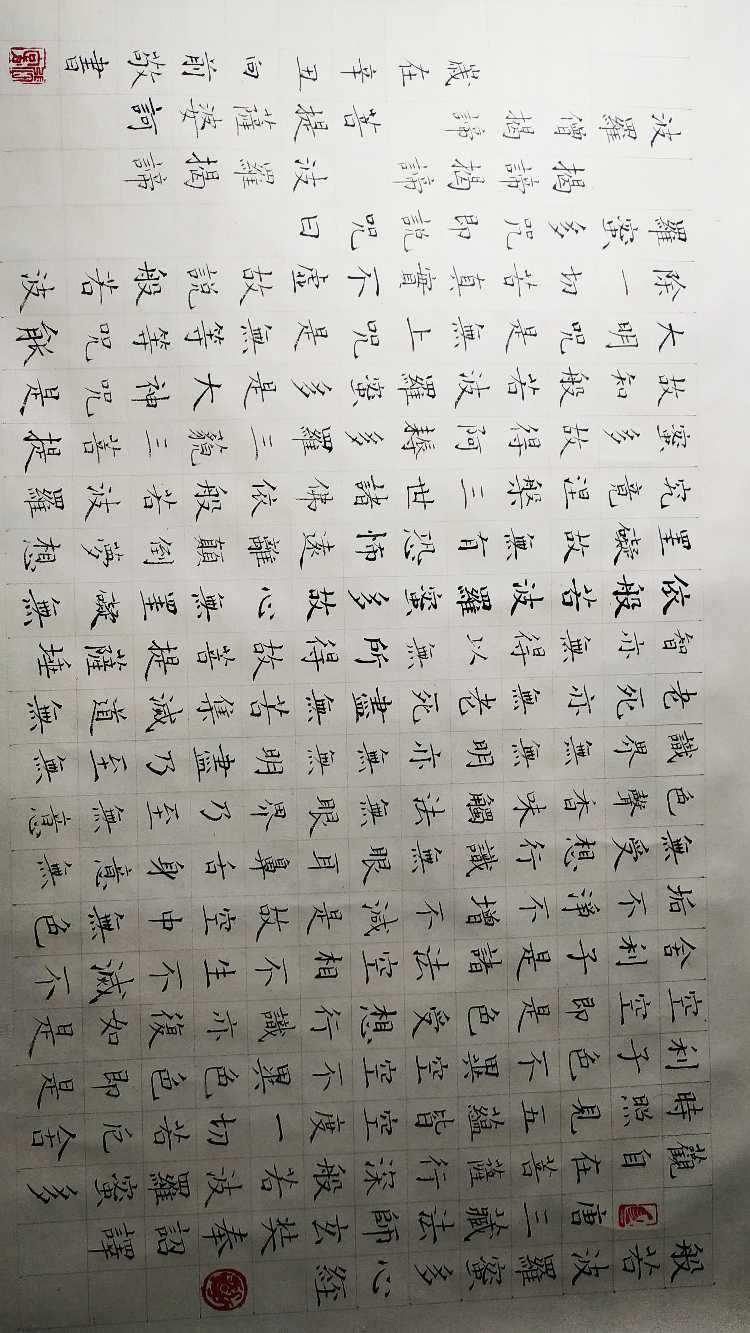 般若波羅蜜多心経
唐三藏法師玄奘奉詔譯
觀自在菩薩行深般若波羅蜜多
時照見五蘊皆空度一切苦厄舍
利子色不異空空不異色色即是
空空即是色受想行識亦復如是
舍利子是諸法空相不生不滅不
垢不淨不增不減是故空中無色
無受想行識無眼耳鼻舌身意無
色聲香味觸法無眼界乃至無意
識界無無明亦無無明盡乃至無
老死亦無老死盡無苦集滅道無
智亦無得以無所得故菩提薩埵
依般若波羅蜜多故心無罣礙無
罣礙故無有恐怖遠離顛倒夢想
究竟涅槃三世諸佛依般若波羅
蜜多故得阿耨多羅三藐三菩提
故知般若波羅蜜多是大神咒是
大明咒是無上咒是無等等咒能
除一切苦真實不虛故說般若波
羅蜜多咒即說咒曰
揭諦揭諦 波羅揭諦
波羅僧揭諦 菩提薩婆訶
歲在辛丑向前敬書